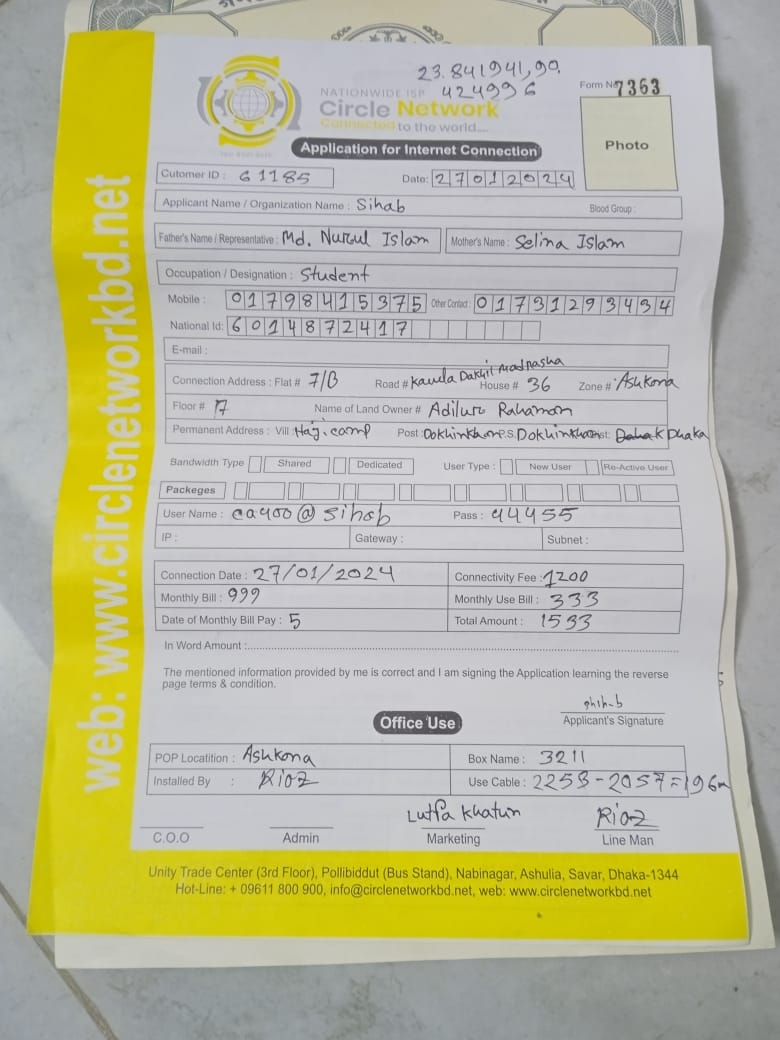 23.841941,90.
424996
NATIONWIDE ISP
Circle Network
Connected to the world....
Form No 7363
Photo
Application for Internet Connection
Cutomer ID : 61185 Date: 27012024
Applicant Name / Organization Name : Sihab Blood Group :
Father's Name / Representative : Md. Nurul Islam Mother's Name : Selina Islam
Occupation / Designation : Student
Mobile : 01798415375 Other Contact : 01731293434
National Id: 6014872417
E-mail :
Connection Address : Flat # 7/B Road # Kawla Dakhil Madrasha House # 36 Zone # Ashkona
Floor # Name of Land Owner # Adilur Rahaman
Permanent Address : Vill : Haji camp Post : Dokhinkhan P.S. Dokhinkhan Dist: Dhaka
Bandwidth Type Shared Dedicated User Type : New User Re-Active User
Packeges
User Name : @ Sihab Pass : 44455
IP : Gateway : Subnet :
Connection Date : 27/01/2024 Connectivity Fee : 1200
Monthly Bill : 999 Monthly Use Bill : 333
Date of Monthly Bill Pay : 5 Total Amount : 1533
In Word Amount :
The mentioned information provided by me is correct and I am signing the Application learning the reverse
page terms & condition.
Applicant's Signature
Office Use
POP Locatition : Ashkona Box Name : 3211
Installed By : Rioz Use Cable : 2253-2057=196m
Lutfa Khatun Rioz
C.O.O Admin Marketing Line Man
Unity Trade Center (3rd Floor), Pollibiddut (Bus Stand), Nabinagar, Ashulia, Savar, Dhaka-1344
Hot-Line: + 09611 800 900, info@circlenetworkbd.net, web: www.circlenetworkbd.net
web: www.circlenetworkbd.net